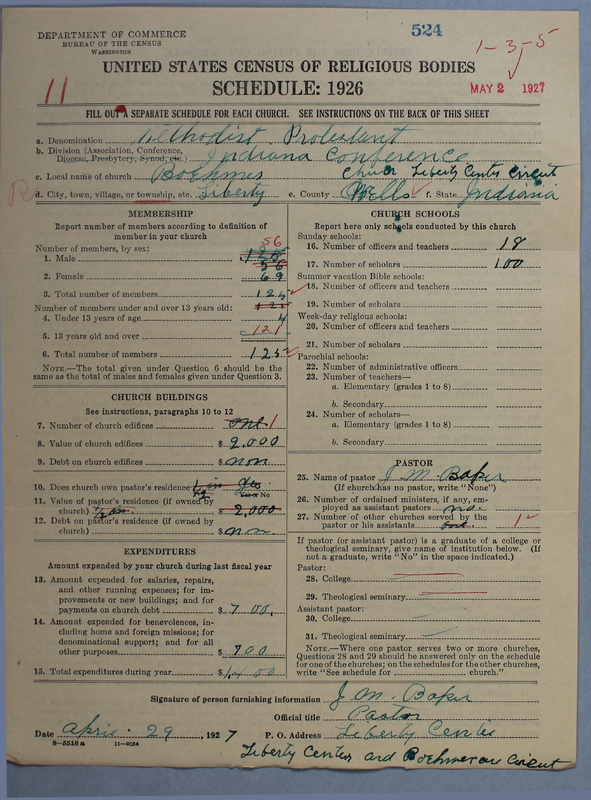 DEPARTMENT OF COMMERCE
BUREAU OF THE CENSUS
WASHINGTON
524
1-3-5
UNITED STATES CENSUS OF RELIGIOUS BODIES
SCHEDULE: 1926
11
MAY 2 1927
FILL OUT A SEPARATE SCHEDULE FOR EACH CHURCH. SEE INSTRUCTIONS ON THE BACK OF THIS SHEET
a. Denomination Methodist Protestant
b. Division (Association, Conference, Diocese, Presbytery, Synod, etc.) Indiana Conference
c. Local name of church Boehmes Church Liberty Center Circuit
R
d. City, town, village, or township, etc. Liberty e. County Wells f. State Indiana
MEMBERSHIP
Report number of members according to definition of
member in your church
Number of members, by sex:
1. Male 56
2. Female 69
3. Total number of members 125
Number of members under and over 13 years old:
4. Under 13 years of age 4
5. 13 years old and over 121
6. Total number of members 125
NOTE.—The total given under Question 6 should be the
same as the total of males and females given under Question 3.
CHURCH BUILDINGS
See instructions, paragraphs 10 to 12
7. Number of church edifices one 1
8. Value of church edifices $ 2,000
9. Debt on church edifices $ non
10. Does church own pastor's residence? 1/2 in Yes
Yes or No
11. Value of pastor's residence (if owned by
church) $ 2,000
12. Debt on pastor's residence (if owned by
church) $ non
EXPENDITURES
Amount expended by your church during last fiscal year
13. Amount expended for salaries, repairs,
and other running expenses; for im-
provements or new buildings; and for
payments on church debt $ 700.
14. Amount expended for benevolences, in-
cluding home and foreign missions; for
denominational support; and for all
other purposes $ 700
15. Total expenditures during year $ 1400
CHURCH SCHOOLS
Report here only schools conducted by this church
Sunday schools:
16. Number of officers and teachers 18
17. Number of scholars 100
Summer vacation Bible schools:
18. Number of officers and teachers
19. Number of scholars
Week-day religious schools:
20. Number of officers and teachers
21. Number of scholars
Parochial schools:
22. Number of administrative officers
23. Number of teachers—
a. Elementary (grades 1 to 8)
b. Secondary
24. Number of scholars—
a. Elementary (grades 1 to 8)
b. Secondary
PASTOR
25. Name of pastor J M Baker
(If church has no pastor, write "None")
26. Number of ordained ministers, if any, em-
ployed as assistant pastors no.
27. Number of other churches served by the
pastor or his assistants one 1
If pastor (or assistant pastor) is a graduate of a college or
theological seminary, give name of institution below. (If
not a graduate, write "No" in the space indicated.)
Pastor:
28. College
29. Theological seminary
Assistant pastor:
30. College
31. Theological seminary
NOTE.—Where one pastor serves two or more churches,
Questions 28 and 29 should be answered only on the schedule
for one of the churches; on the schedules for the other churches,
write "See schedule for church."
Signature of person furnishing information J M. Baker
Official title Pastor
Date April 29, 1927 P. O. Address Liberty Center
8-5518a 11-9554
Liberty Center and Boehmer Circuit